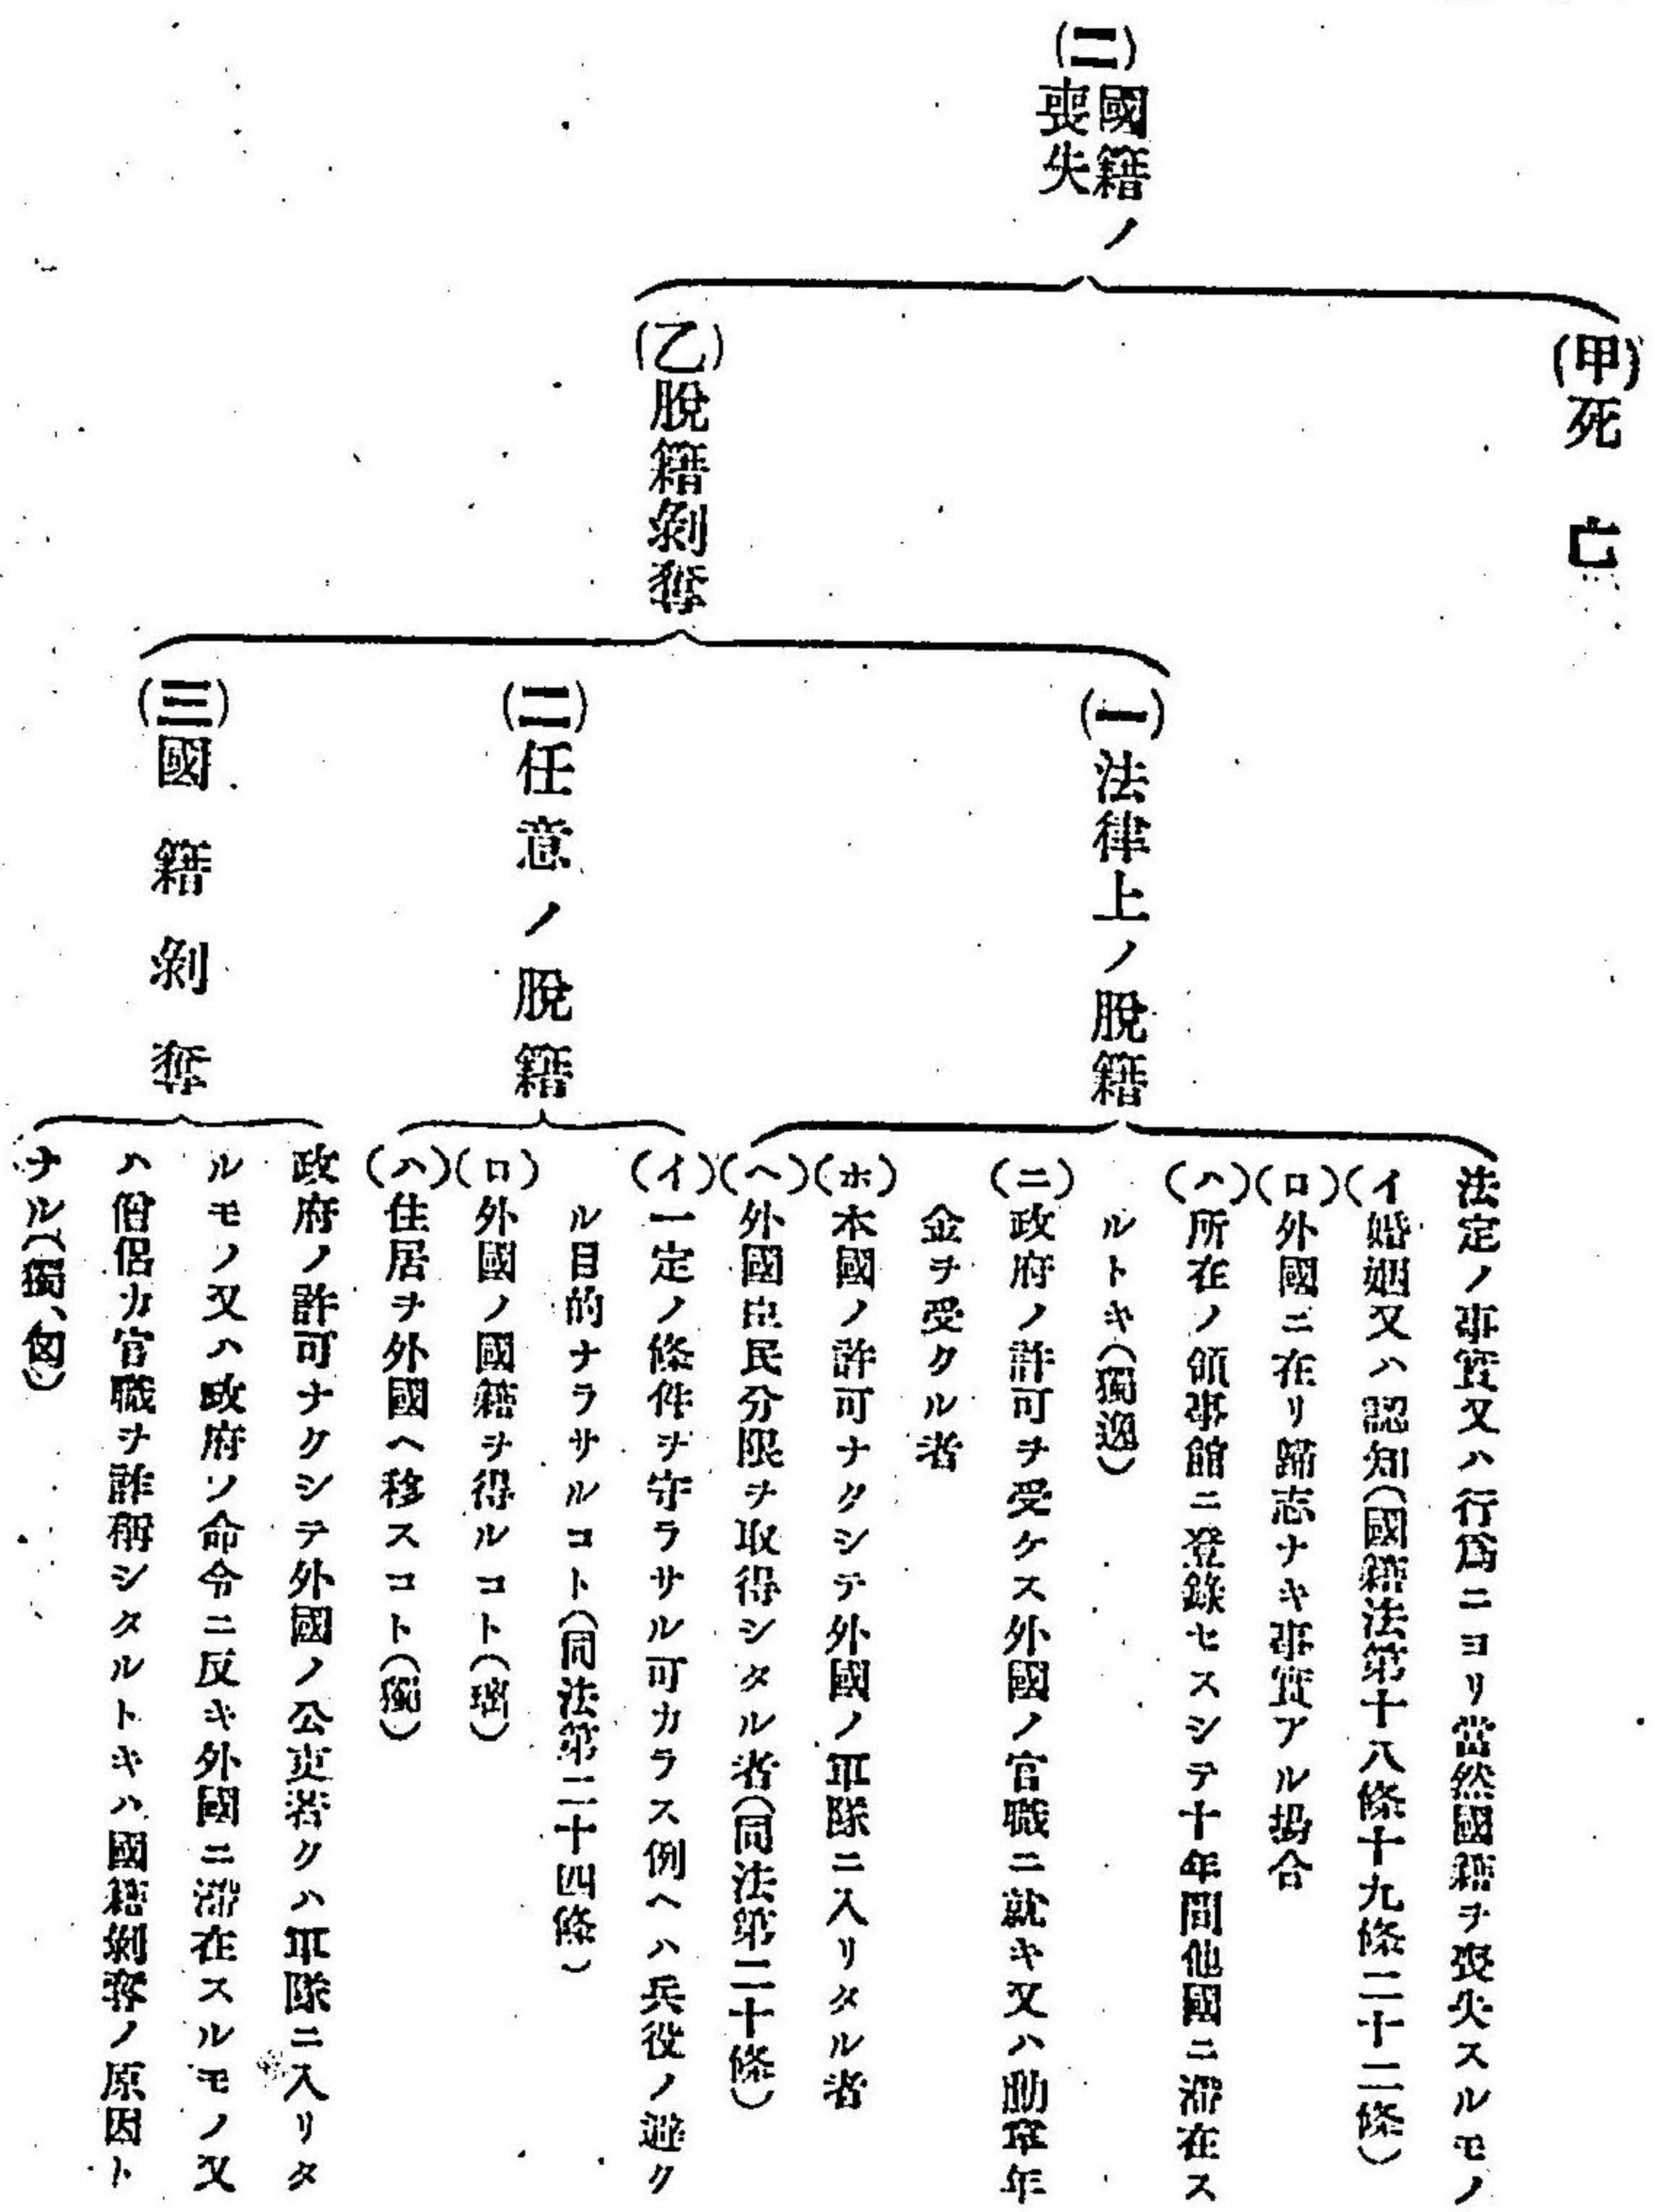 (二)國籍ノ
喪失
(甲)死亡
(乙)脫籍剝奪
(一)法律上ノ脫籍
法定ノ事實又ハ行爲ニヨリ當然國籍ヲ喪失スルモノ
(イ)婚姻又ハ認知(國籍法第十八條十九條二十二條)
(ロ)外國ニ在リ歸志ナキ事實アル塲合
(ハ)所在ノ領事館ニ登錄セスシテ十年間他國ニ滯在ス
ルトキ(獨逸)
(ニ)政府ノ許可ヲ受ケス外國ノ官職ニ就キ又ハ勳章年
金ヲ受クル者
(ホ)本國ノ許可ナクシテ外國ノ軍隊ニ入リタル者
(ヘ)外國臣民分限ヲ取得シタル者(同法第二十條)
(二)任意ノ脫籍
(イ)一定ノ條件ヲ守ラサル可カラス例ヘハ兵役ノ避ク
ル目的ナラサルコト(同法第二十四條)
(ロ)外國ノ國籍ヲ得ルコト(瑞)
(ハ)住居ヲ外國ヘ移スコト(獨)
(三)國籍剝奪
政府ノ許可ナクシテ外國ノ公吏若クハ軍隊ニ入リタ
ルモノ又ハ政府ソ命令ニ反キ外國ニ滯在スルモノ又
ハ僧侶カ官職ヲ詐稱シタルトキハ國籍剝奪ノ原因ト
ナル(獨、匈)